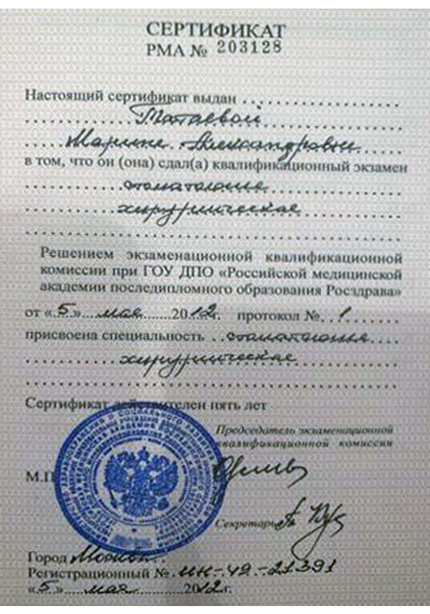 СЕРТИФИКАТ
РМА № 203128
Настоящий сертификат выдан
Татаевой
Марине Александровне
в том, что он (она) сдал(а) квалификационный экзамен
стоматология
хирургическая
Решением экзаменационной квалификационной
комиссии при ГОУ ДПО «Российской медицинской
академии последипломного образования Росздрава»
от «5» мая 2012. протокол № 1
присвоена специальность стоматология
хирургическая
Сертификат действителен пять лет
Председатель экзаменационной
квалификационной комиссии
М.П
Секретарь
Город Москва
Регистрационный № ИН-49-21391
«5» мая 2012г.